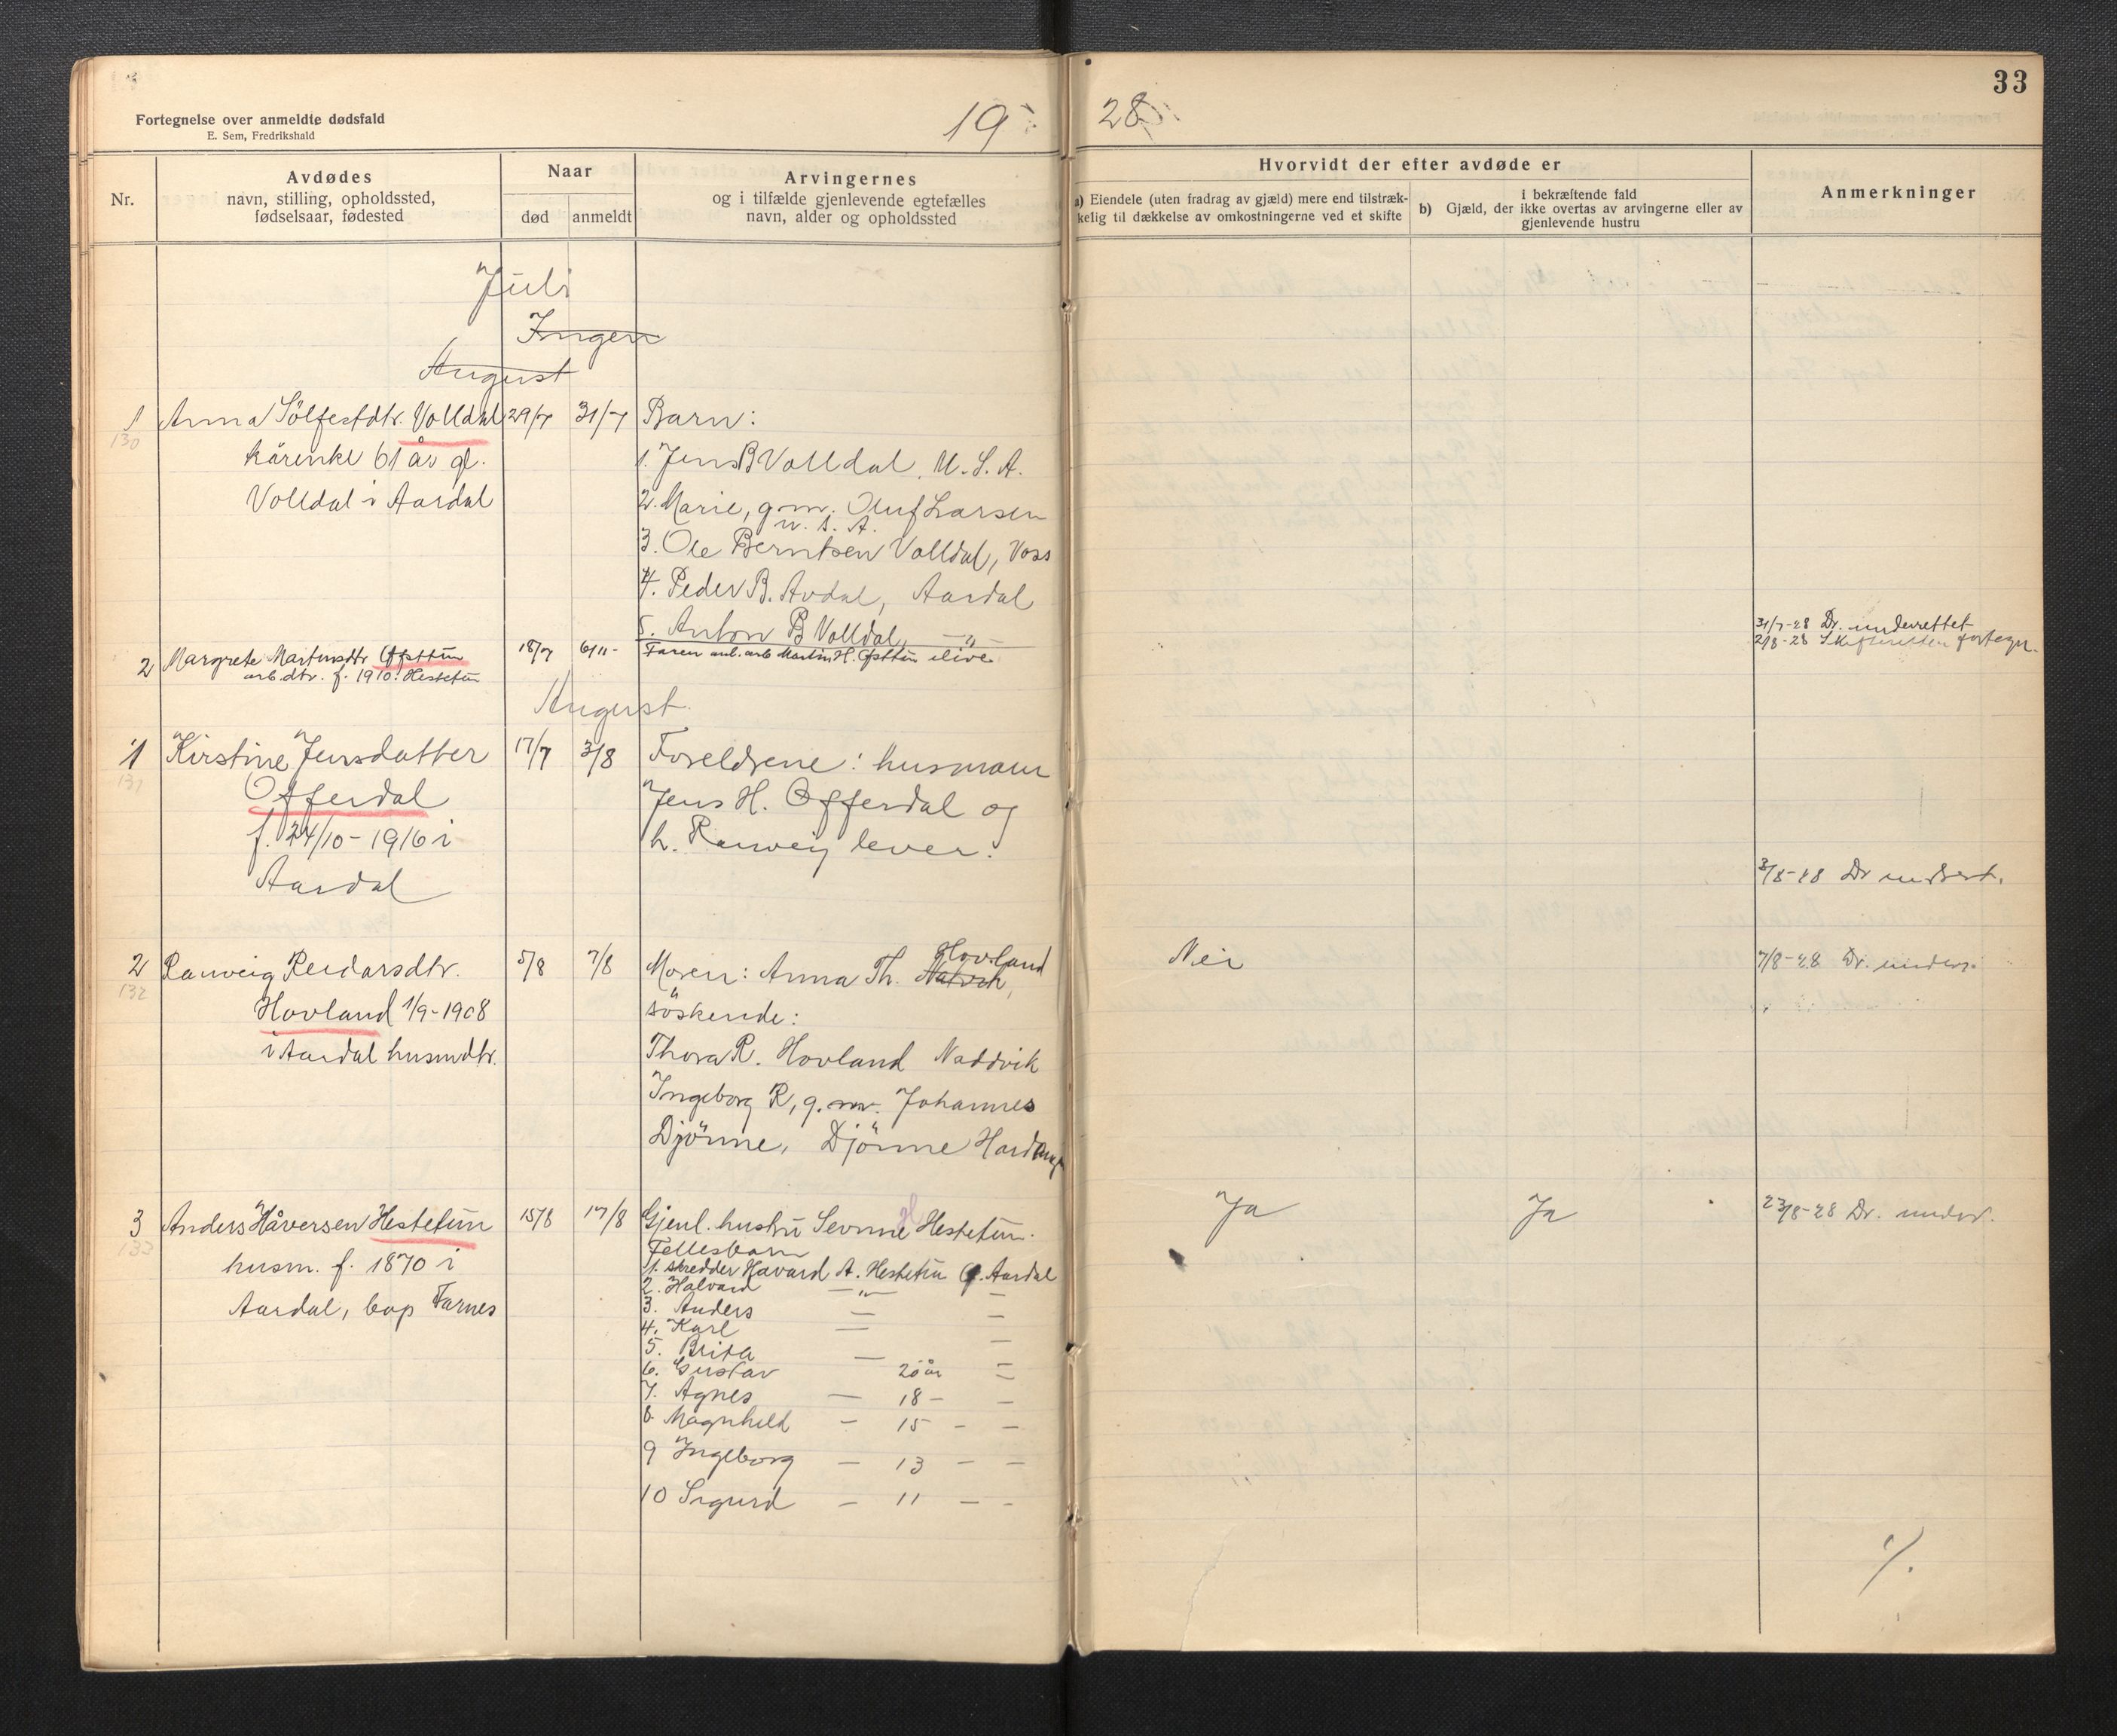 33
Fortegnelse over anmeldte dødsfald
E. Sem, Fredrikshald
19
28
Nr.
Avdødes
navn, stilling, opholdssted,
fødselsaar, fødested
Naar
død
anmeldt
Arvingernes
og i tilfælde gjenlevende egtefælles
navn, alder og opholdssted
Hvorvidt der efter avdøde er
a) Eiendele (uten fradrag av gjæld) mere end tilstræk-
kelig til dækkelse av omkostningerne ved et skifte
i bekræftende fald
b) Gjæld, der ikke overtas av arvingerne eller av
gjenlevende hustru
Anmerkninger
Juli
Ingen
August
1 Anna Sölfestdtr. Volldal 29/7 31/7 Barn:
130
kårenke 61 år gl. 1. Jens B Volldal, U.S.A.
Volldal i Aardal 2. Marie, g.m. Oluf Larsen
U.S.A.
3. Ole Berntsen Volldal, Voss
4. Peder B. Avdal, Aardal
5. Anton B Volldal, —"—
31/7-28 Dr. underrettet
2/8-28 Skifteretten fortegn.
2 Margrete Martinsdtr Ofsttun 18/7 6/11- Faren anl. arb Martin H. Ofsttun ilive
arb.dtr. f. 1910. Hestetun
August
1 Kirstine Jensdatter 17/7 3/8 Foreldrene: husmann
131
Offerdal Jens H. Offerdal og
f. 24/10-1916 i h. Ranveig lever.
Aardal
3/8-28 Dr underret.
2 Ranveig Reidarsdtr. 5/8 7/8 Moren: Anna Th. Hovland Nei 7/8-28 Dr. underr.
132
Hovland 1/9-1908 söskende:
i Aardal husmdtr. Thora R. Hovland Naddvik
Ingeborg R, g.m. Johannes
Djönne, Djönne Hardang
3 Anders Håversen Hestetun 15/8 17/8 Gjenl. hustru Hestetun. Ja Ja 23/8-28 Dr. underr.
133
husm. f. 1870 i Fellesbarn
Aardal, bop Farnes 1. skredder Havard A. Hestetun Aardal
2. Halvard —"— —
3. Anders — —
4. Karl — —
5. Brita —
6. Gustav 20 år —
7. Agnes — 18 — —
8 Magnhild — 15 — —
9 Ingeborg — 13 — —
10 Sigurd — 11 — —
./.